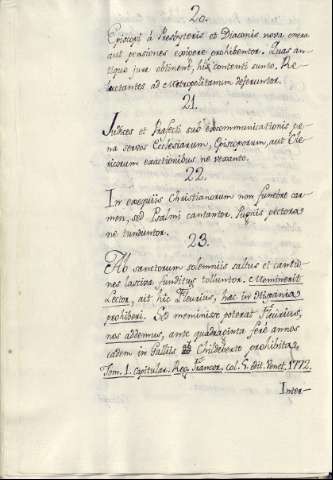 20.
Episcopi à Presbyteris et Diaconis nova onera
aut pensiones exigere prohibentor. Quas an-
tiquo jure obtinent, his contenti sunto. Re-
luctantes ad Metropolitanum deferuntor.
21.
Judices et Præfecti sub excommunicationis pe-
na servos Ecclesiarum, Episcoporum, aut Cle-
ricorum exactionibus ne vexanto.
22.
In exequiis Christianorum non funebre car-
men, sed Psalmi cantantor. Pugnis pectora
ne tunduntor.
23.
Ab sanctorum solemniis saltus et cantio-
nes lascivæ funditus tolluntor. Meminerit
Lector, ait hic Fleurius, hac in Hispania
prohiberi. Sed meminisse poterat Fleurius,
nos addemus, ante quadraginta ferè annos
eadem in Galliis Childeberto prohibita,
Tom. 1. Capitular. Reg. Francor. col. 6. Edit. Venet. 1772.
Inter-